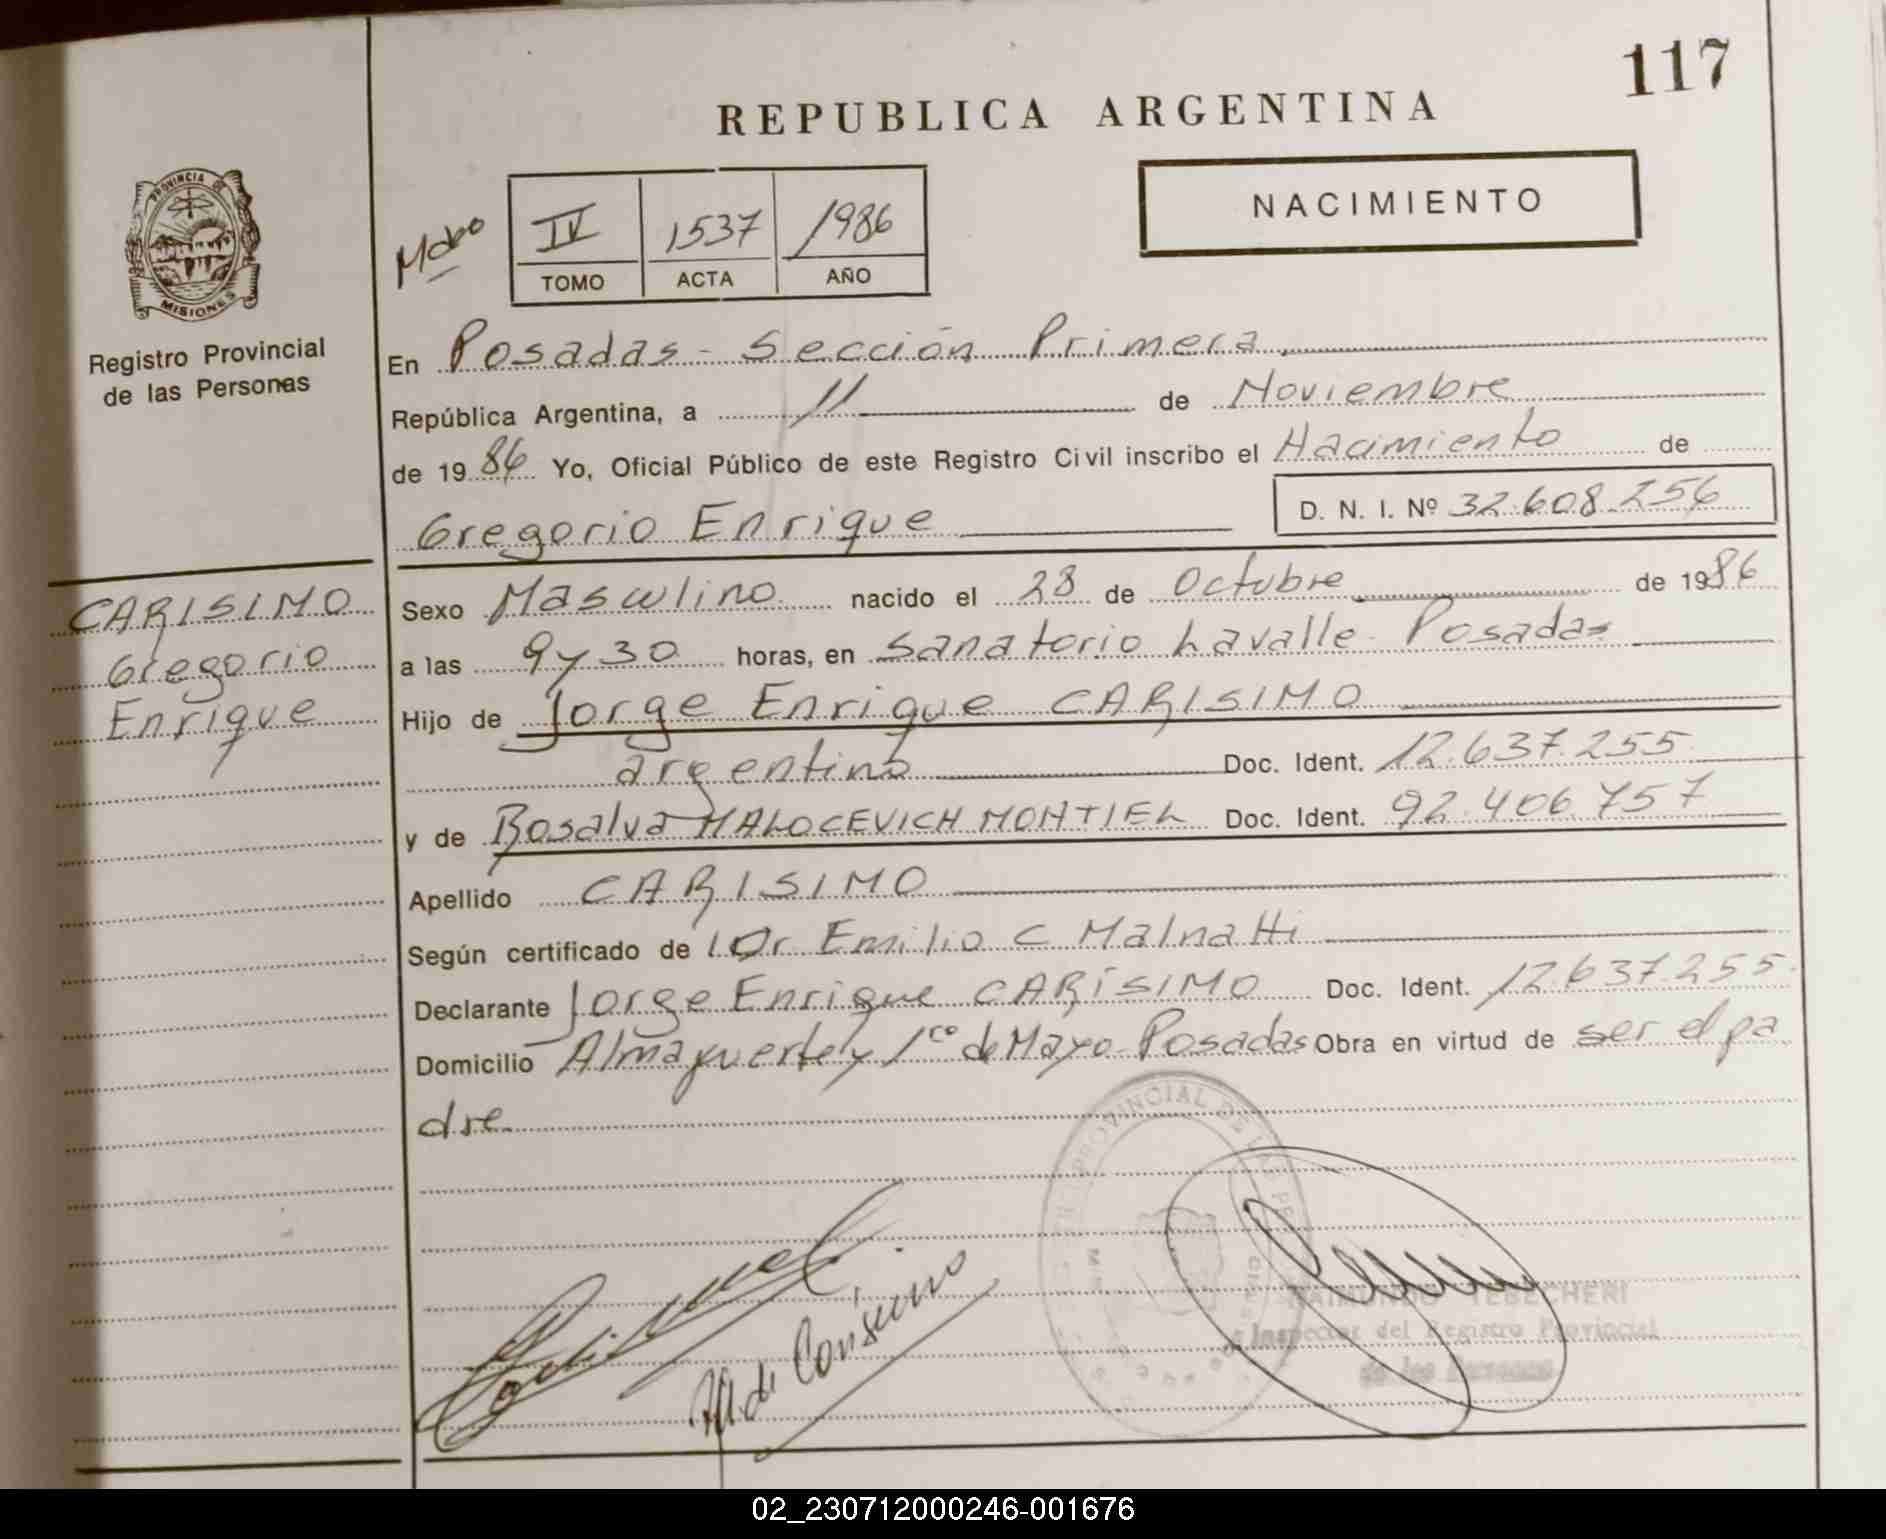 117
REPUBLICA ARGENTINA
NACIMIENTO
IV 1537 1986
TOMO ACTA AÑO
PROVINCIA DE
MISIONES
Registro Provincial
de las Personas
En Posadas - Sección Primera
República Argentina, a 11 de Noviembre
de 1986 Yo, Oficial Público de este Registro Civil inscribo el Nacimiento de
Gregorio Enrique D. N. I. Nº 32.608.256
CARISIMO
Gregorio
Enrique
Sexo Masculino nacido el 28 de Octubre de 1986
a las 9 y 30 horas, en Sanatorio Lavalle - Posadas
Hijo de Jorge Enrique CARISIMO
argentino Doc. Ident. 12.637.255
y de Rosalva MALOCEVICH MONTIEL Doc. Ident. 92.406.757
Apellido CARISIMO
Según certificado de Dr Emilio C Malnatti
Declarante Jorge Enrique CARÍSIMO Doc. Ident. 12.637.255
Domicilio Almafuerte y 1ro de Mayo - Posadas Obra en virtud de ser el pa
dre
RAIMUNDO TEBECHERI
Inspector del Registro Provincial
de las Personas
02_230712000246-001676